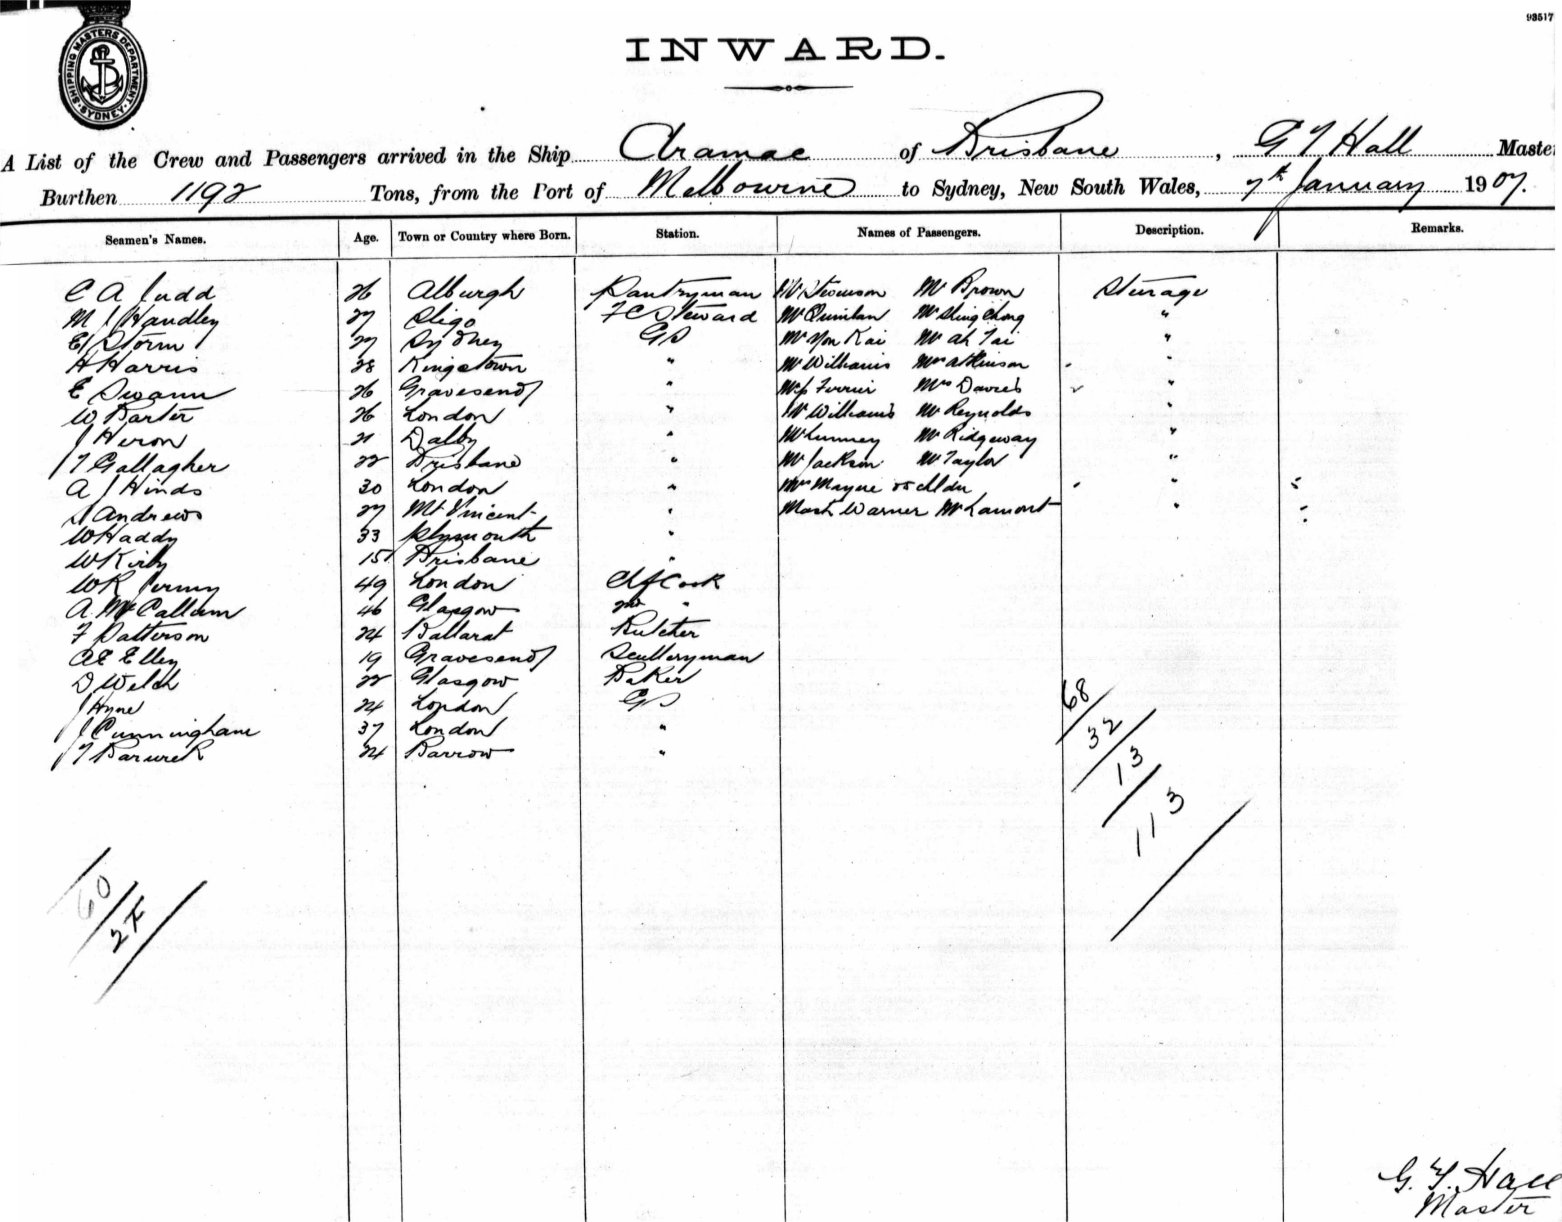 93517
SHIPPING MASTERS DEPARTMENT
SYDNEY
INWARD.
A List of the Crew and Passengers arrived in the Ship Aramac of Brisbane, G T Hall Master
Burthen 1192 Tons, from the Port of Melbourne to Sydney, New South Wales, 7th January 1907.
Seamen's Names. Age. Town or Country where Born. Station. Names of Passengers. Description. Remarks.
C A Judd 26 Alburgh Pantryman Mr Stevenson Mr Brown Steerage
M J Handley 27 Sligo F C Steward Mr Quinlan Mr Shing Chong "
E J Storm 27 Sydney GS Mr Yon Kai Mr Ah Tai "
H Harris 28 Kingstown " Mr Williams Mrs Atkinson "
E Swann 26 Gravesend " Ferrier Mrs Davies "
W Barter 26 London " Mr Williams Mr Reynolds "
J Heron 21 Dalby " Mr Lumney Mr Ridgeway "
J T Gallagher 22 Brisbane " Mr Jackson Mr Taylor "
A J Hinds 30 London " Mrs Mayne "
Andrews 27 Mt Vincent " Mast Warner Mr Lamont "
W Haddy 33 Plymouth "
W Kirby 15 Brisbane "
W R Jermy 49 London Cook
A McCallum 46 Glasgow 2nd "
F Patterson 24 Ballarat Butcher
A E Elley 19 Gravesend Sculleryman
D Welch 22 Glasgow Baker
J Hyne 24 London GS
J Cunninghame 37 London "
J T Barwick 24 Barrow "
68
32
13
113
60
G. T. Hall
Master